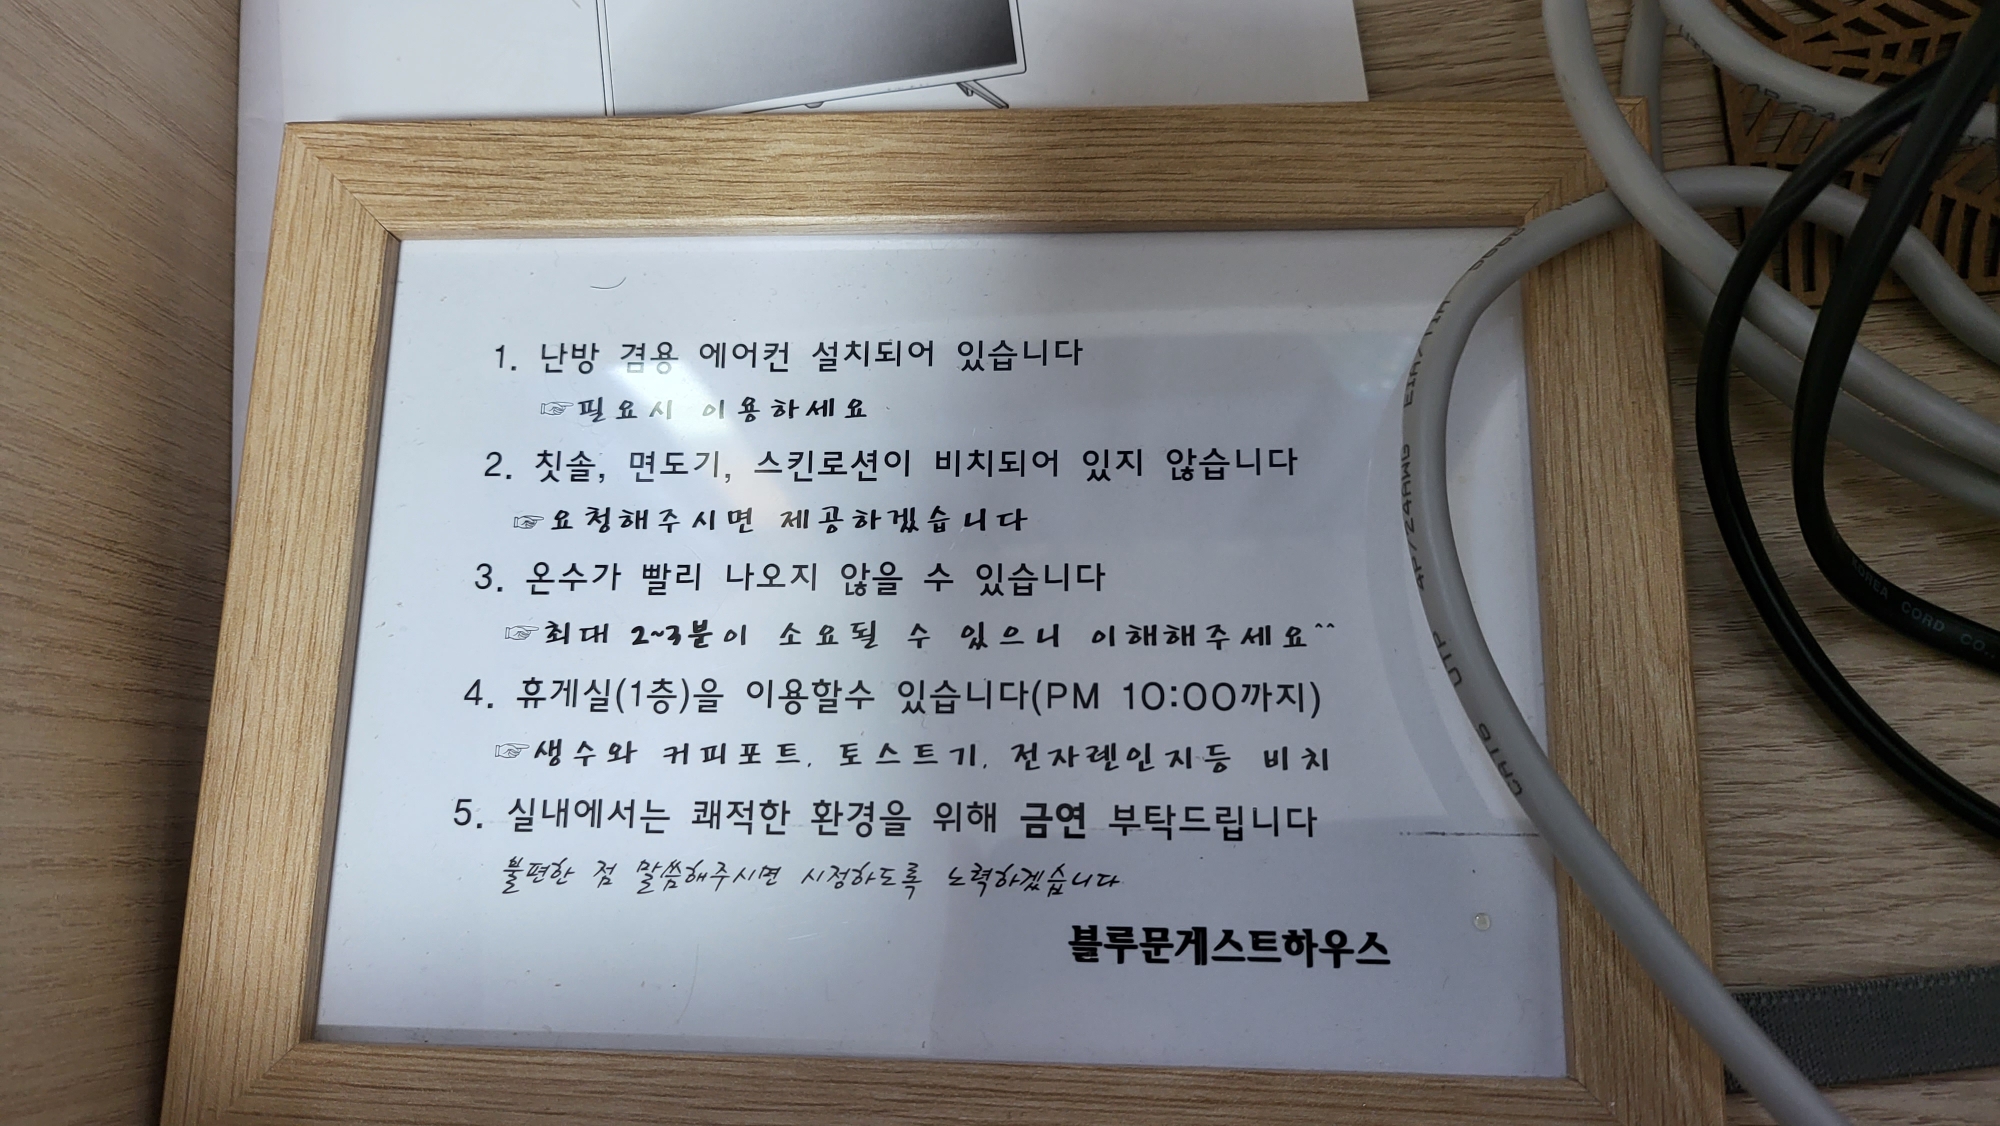 1. 난방 겸용 에어컨 설치되어 있습니다
☞필요시 이용하세요
2. 칫솔, 면도기, 스킨로션이 비치되어 있지 않습니다
☞요청해주시면 제공하겠습니다
3. 온수가 빨리 나오지 않을 수 있습니다
☞최대 2~3분이 소요될 수 있으니 이해해주세요^^
4. 휴게실(1층)을 이용할수 있습니다(PM 10:00까지)
☞생수와 커피포트, 토스트기, 전자렌인지등 비치
5. 실내에서는 쾌적한 환경을 위해 금연 부탁드립니다
불편한 점 말씀해주시면 시정하도록 노력하겠습니다
블루문게스트하우스
4P/24AWG
UTP
CAT.5
KOREA CORD CO.,